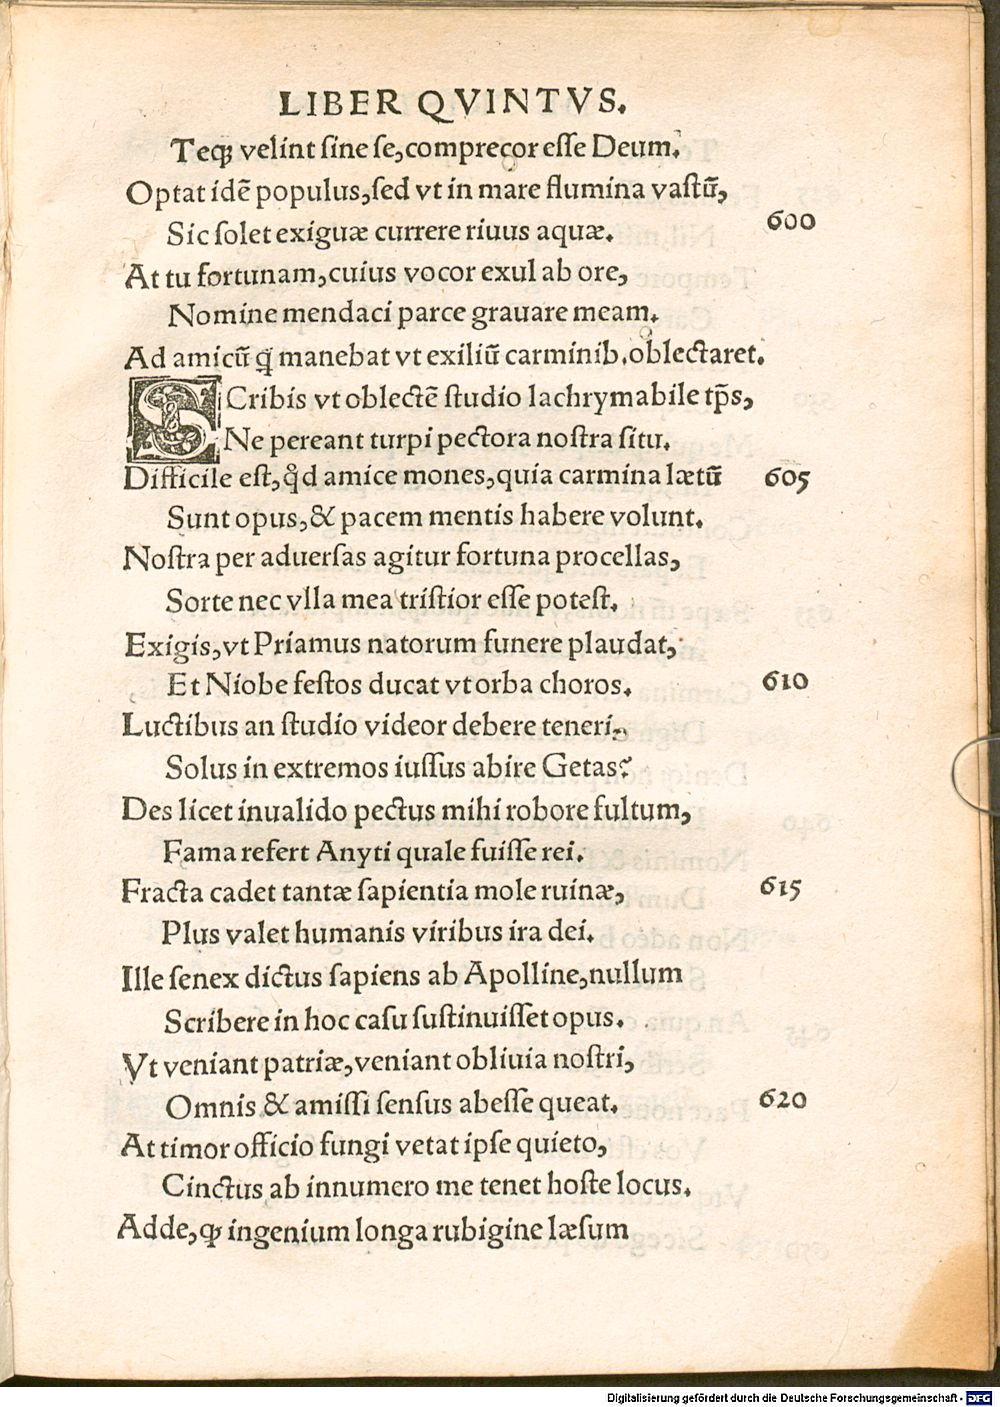 LIBER QVINTVS.
Teq; velint ſine ſe, comprecor eſſe Deum.
Optat idē populus, ſed vt in mare flumina vaſtū,
Sic ſolet exiguæ currere riuus aquæ. 600
At tu fortunam, cuius vocor exul ab ore,
Nomine mendaci parce grauare meam.
Ad amicū q̄ manebat vt exiliū carminib. oblectaret.
SCribis vt oblectē ſtudio lachrymabile tp̄s,
Ne pereant turpi pectora noſtra ſitu.
Difficile eſt, qd̛ amice mones, quia carmina lætū 605
Sunt opus, & pacem mentis habere volunt.
Noſtra per aduerſas agitur fortuna procellas,
Sorte nec vlla mea triſtior eſſe poteſt.
Exigis, vt Priamus natorum funere plaudat,
Et Niobe feſtos ducat vt orba choros. 610
Luctibus an ſtudio videor debere teneri,
Solus in extremos iuſſus abire Getas?
Des licet inualido pectus mihi robore fultum,
Fama refert Anyti quale fuiſſe rei.
Fracta cadet tantæ ſapientia mole ruinæ, 615
Plus valet humanis viribus ira dei.
Ille ſenex dictus ſapiens ab Apolline, nullum
Scribere in hoc caſu ſuſtinuiſſet opus.
Vt veniant patriæ, veniant obliuia noſtri,
Omnis & amiſſi ſenſus abeſſe queat. 620
At timor officio fungi vetat ipſe quieto,
Cinctus ab innumero me tenet hoſte locus.
Adde, ꝙ ingenium longa rubigine læſum
Digitalisierung gefördert durch die Deutsche Forschungsgemeinschaft - DFG